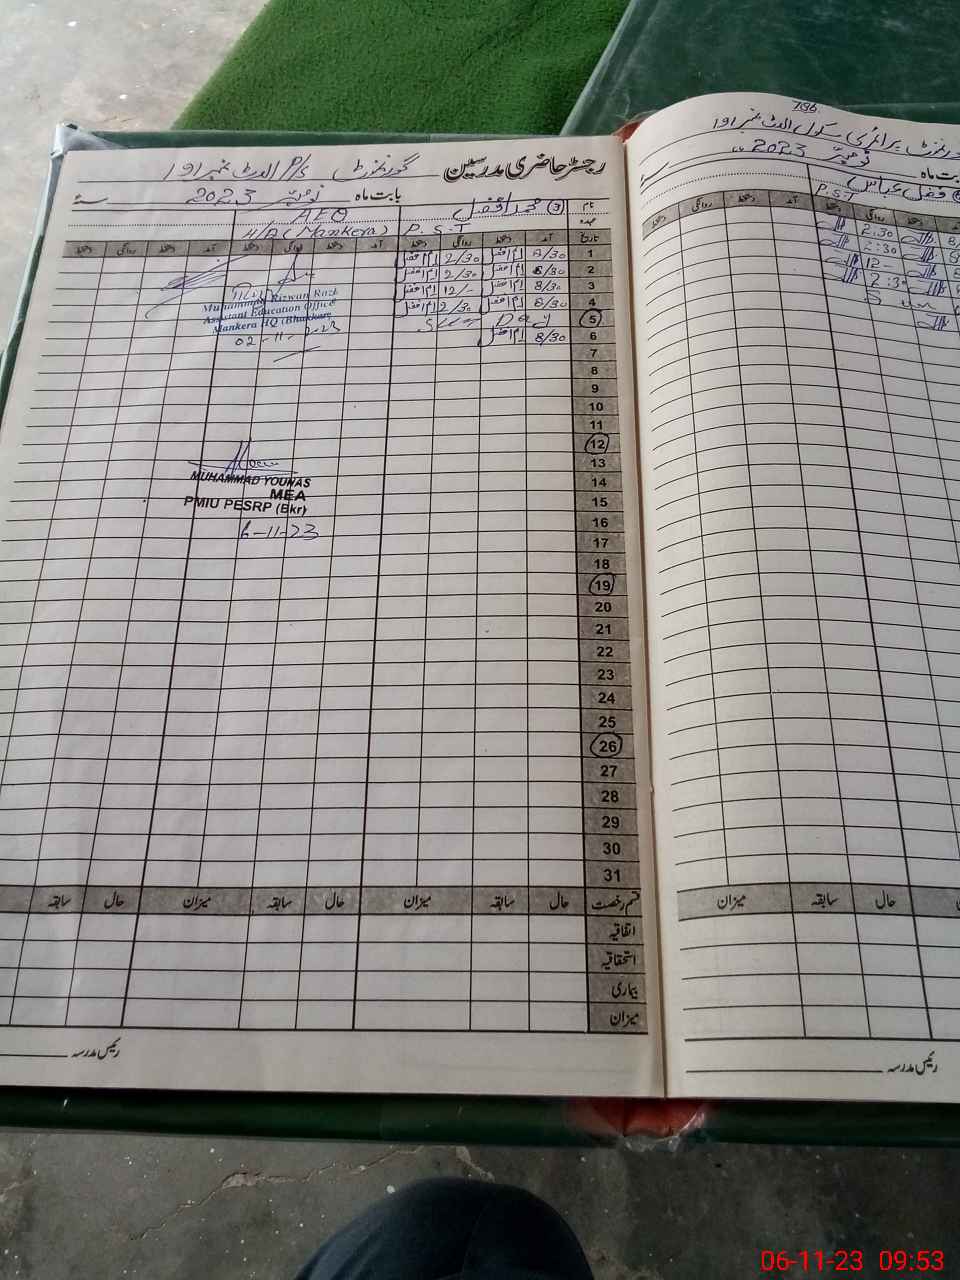 رجسٹر حاضری مدرسین گورنمنٹ P/S الدٹ نمبر 191
بابت ماہ نومبر 2023 سنہ
نام ③ محمد افضل AEO
عہدہ P.S.T H/Q (Mankera)
تاریخ آمد دستخط روانگی دستخط آمد دستخط روانگی دستخط آمد دستخط روانگی دستخط
1 8/30 ایم افضل 2/30 ایم افضل
2 8/30 ایم افضل 2/30 ایم افضل
3 8/30 ایم افضل 12/- ایم افضل
4 8/30 ایم افضل 2/30 ایم افضل
5 Sun Day
6 8/30 ایم افضل
7
8
9
10
11
12
13
14
15
16
17
18
19
20
21
22
23
24
25
26
27
28
29
30
31
Muhammad Rizwan Razi
Assistant Education Officer
Mankera HQ (Bhakkar)
02-11-2023
MUHAMMAD YOUNAS
MEA
PMIU PESRP (Bkr)
6-11-23
قسم رخصت حال سابقہ میزان حال سابقہ میزان حال سابقہ
اتفاقیہ
استحقاقیہ
بیماری
میزان
رئیس مدرسہ
786
گورنمنٹ پرائمری سکول الدٹ نمبر 191
بابت ماہ نومبر 2023
فضل عباس
P.S.T
دستخط روانگی دستخط آمد دستخط روانگی دستخط
2:30
2:30
12-
2:30
Sun
حال سابقہ میزان
رئیس مدرسہ
06-11-23 09:53